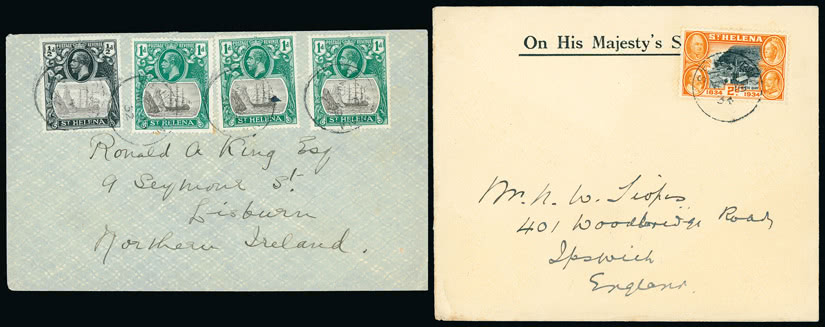 ½d
1d
1d
1d
POSTAGE & REVENUE
POSTAGE & REVENUE
POSTAGE & REVENUE
POSTAGE & REVENUE
ST HELENA
ST HELENA
ST HELENA
ST HELENA
32
Ronald A King Esq
9 Seymour St.
Lisburn
Northern Ireland.
On His Majesty's S
ST HELENA
1834 1934
34
Mr. W.
401 Woodbridge Road,
Ipswich
England.